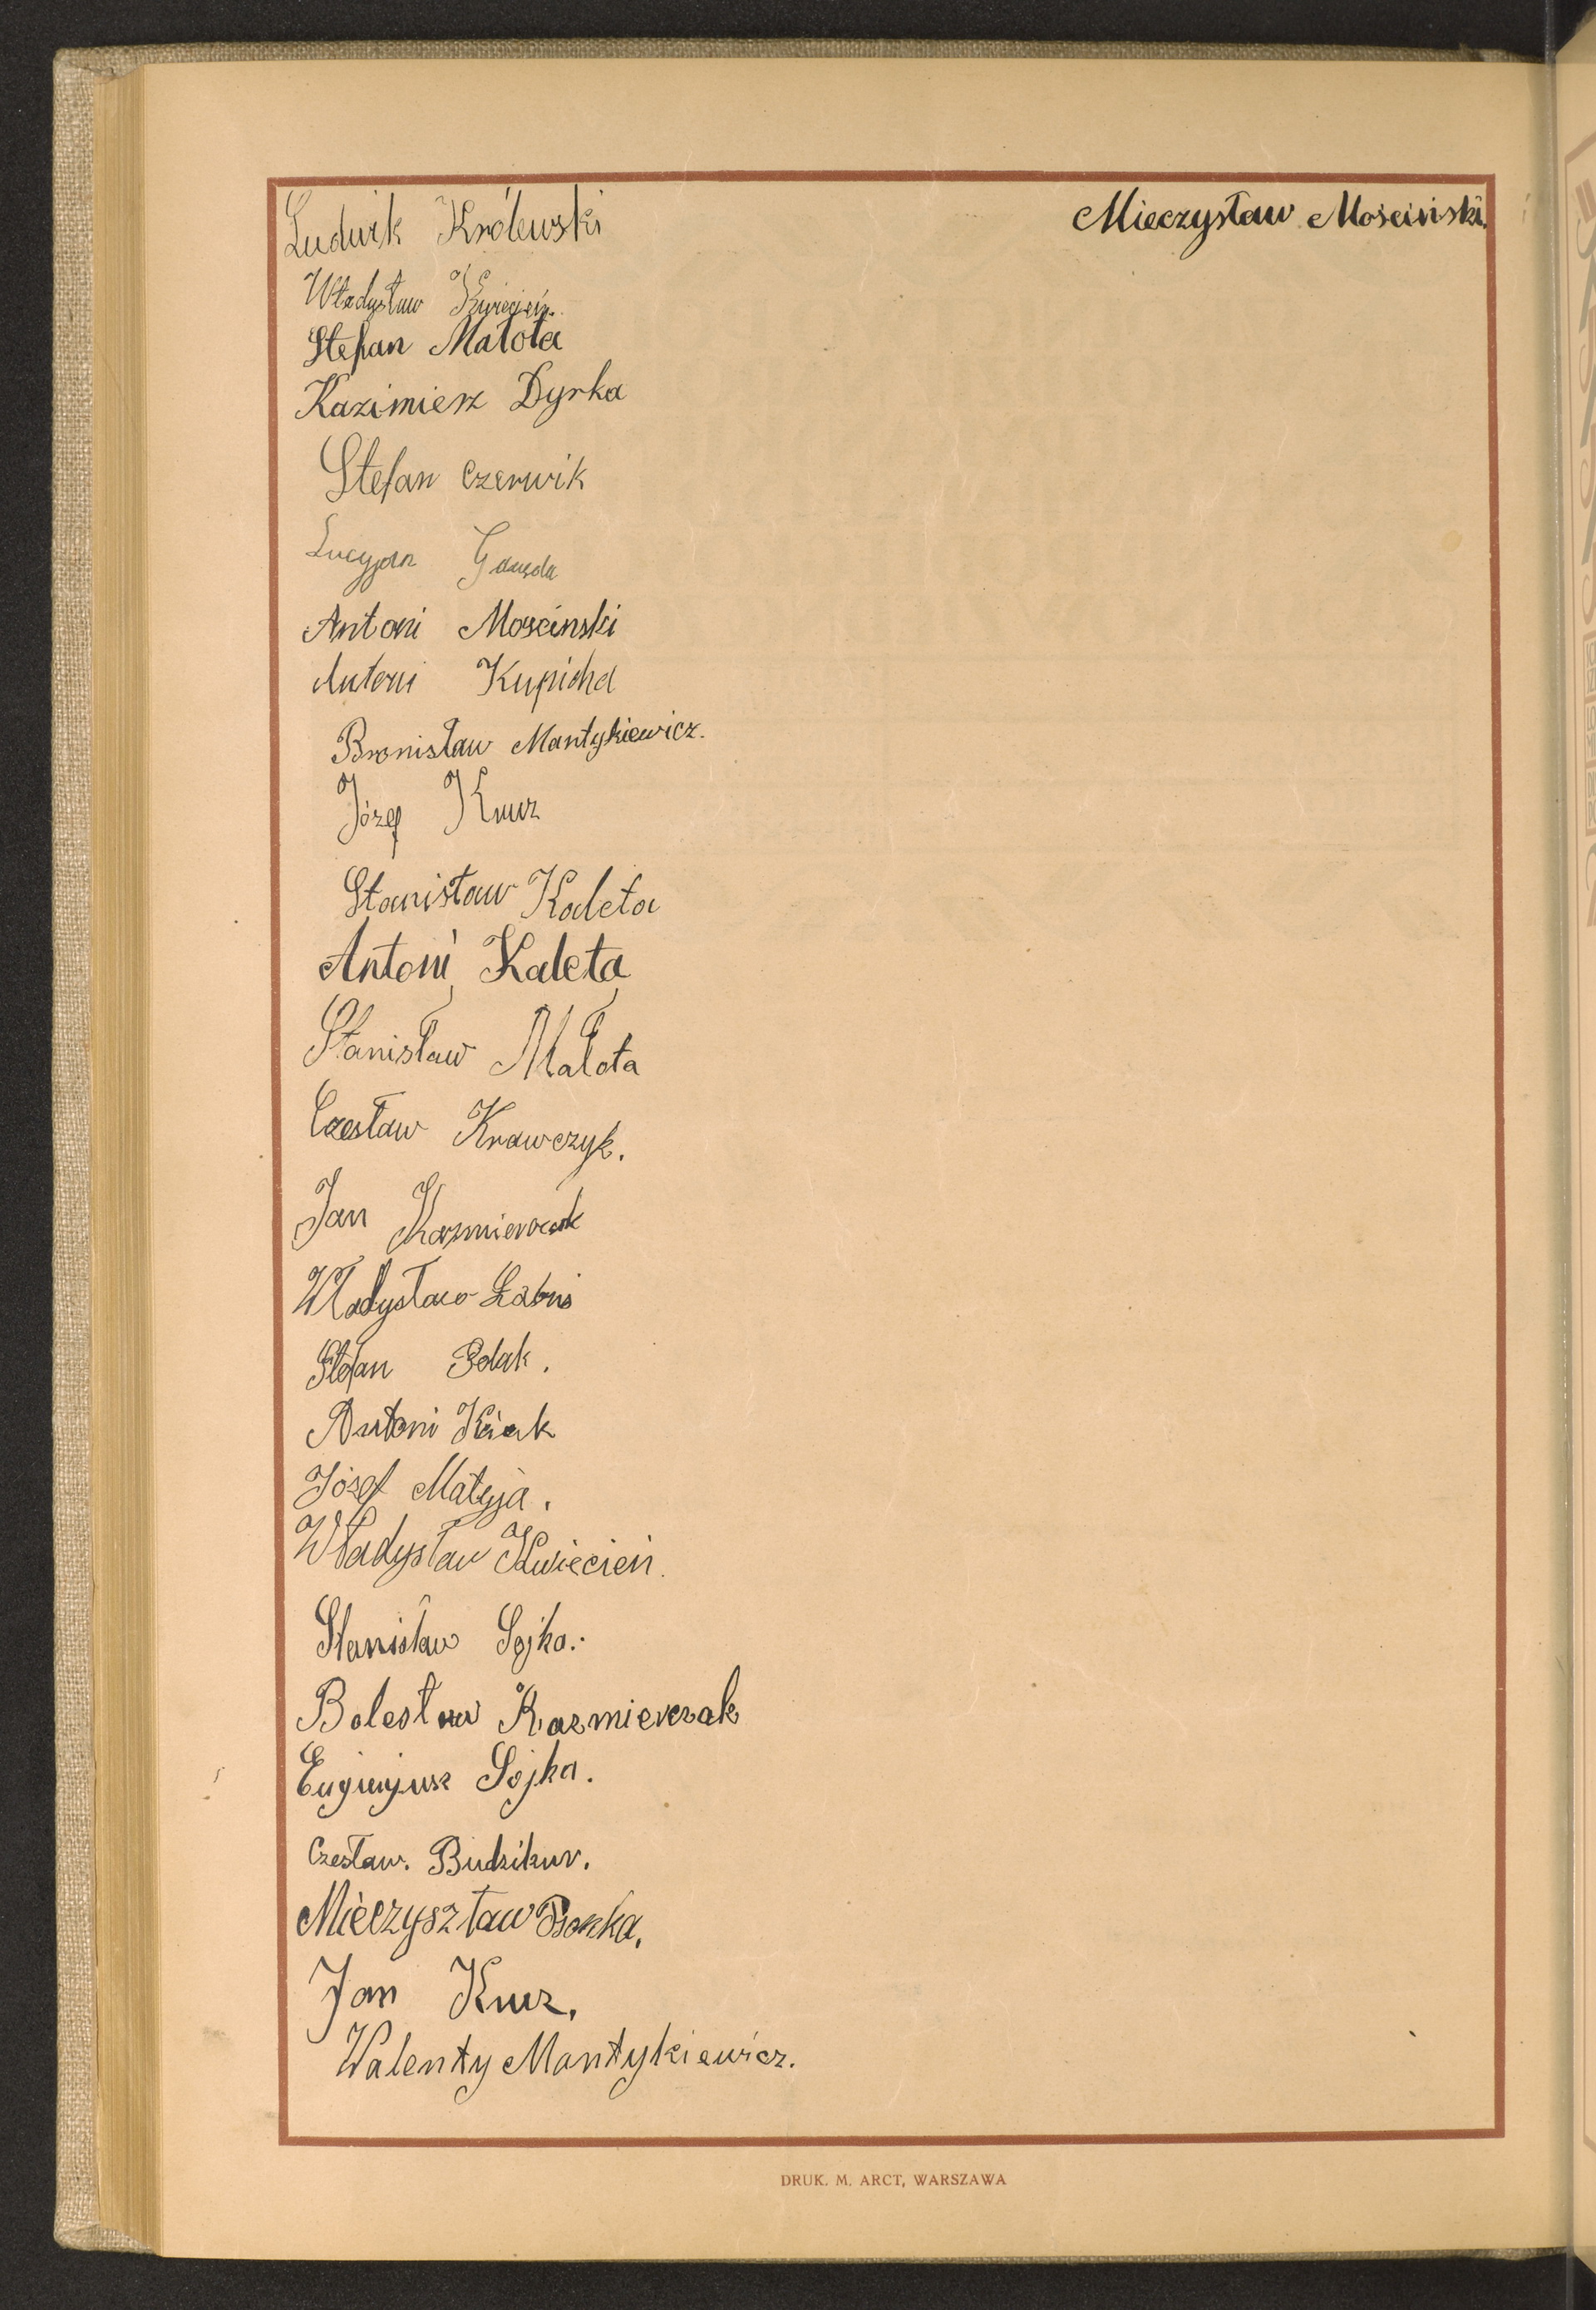 Ludwik Królewski
Mieczysław Mościński.
Władysław Kwiecień.
Stefan Małota
Kazimierz Dyrka
Stefan Czerwik
Lucyjan Gawęda
Antoni Mościnski
Antoni Kupicha
Bronisław Mantykiewicz.
Józef Kmuz
Stanisław Kaleta
Antoni Kaleta
Stanisław Małota
Czesław Krawczyk.
Jan
Władysław Łabuś
Stefan Polak.
Antoni
Józef Mateja.
Władysław Kwiecień.
Stanisław Sojka.
Bolesław Kazmierczak
Eugienijusz Sojka.
Czesław. Budzikur.
Mieczyszław
Jan Kmuz.
Walenty Mantykiewicz.
DRUK. M. ARCT, WARSZAWA